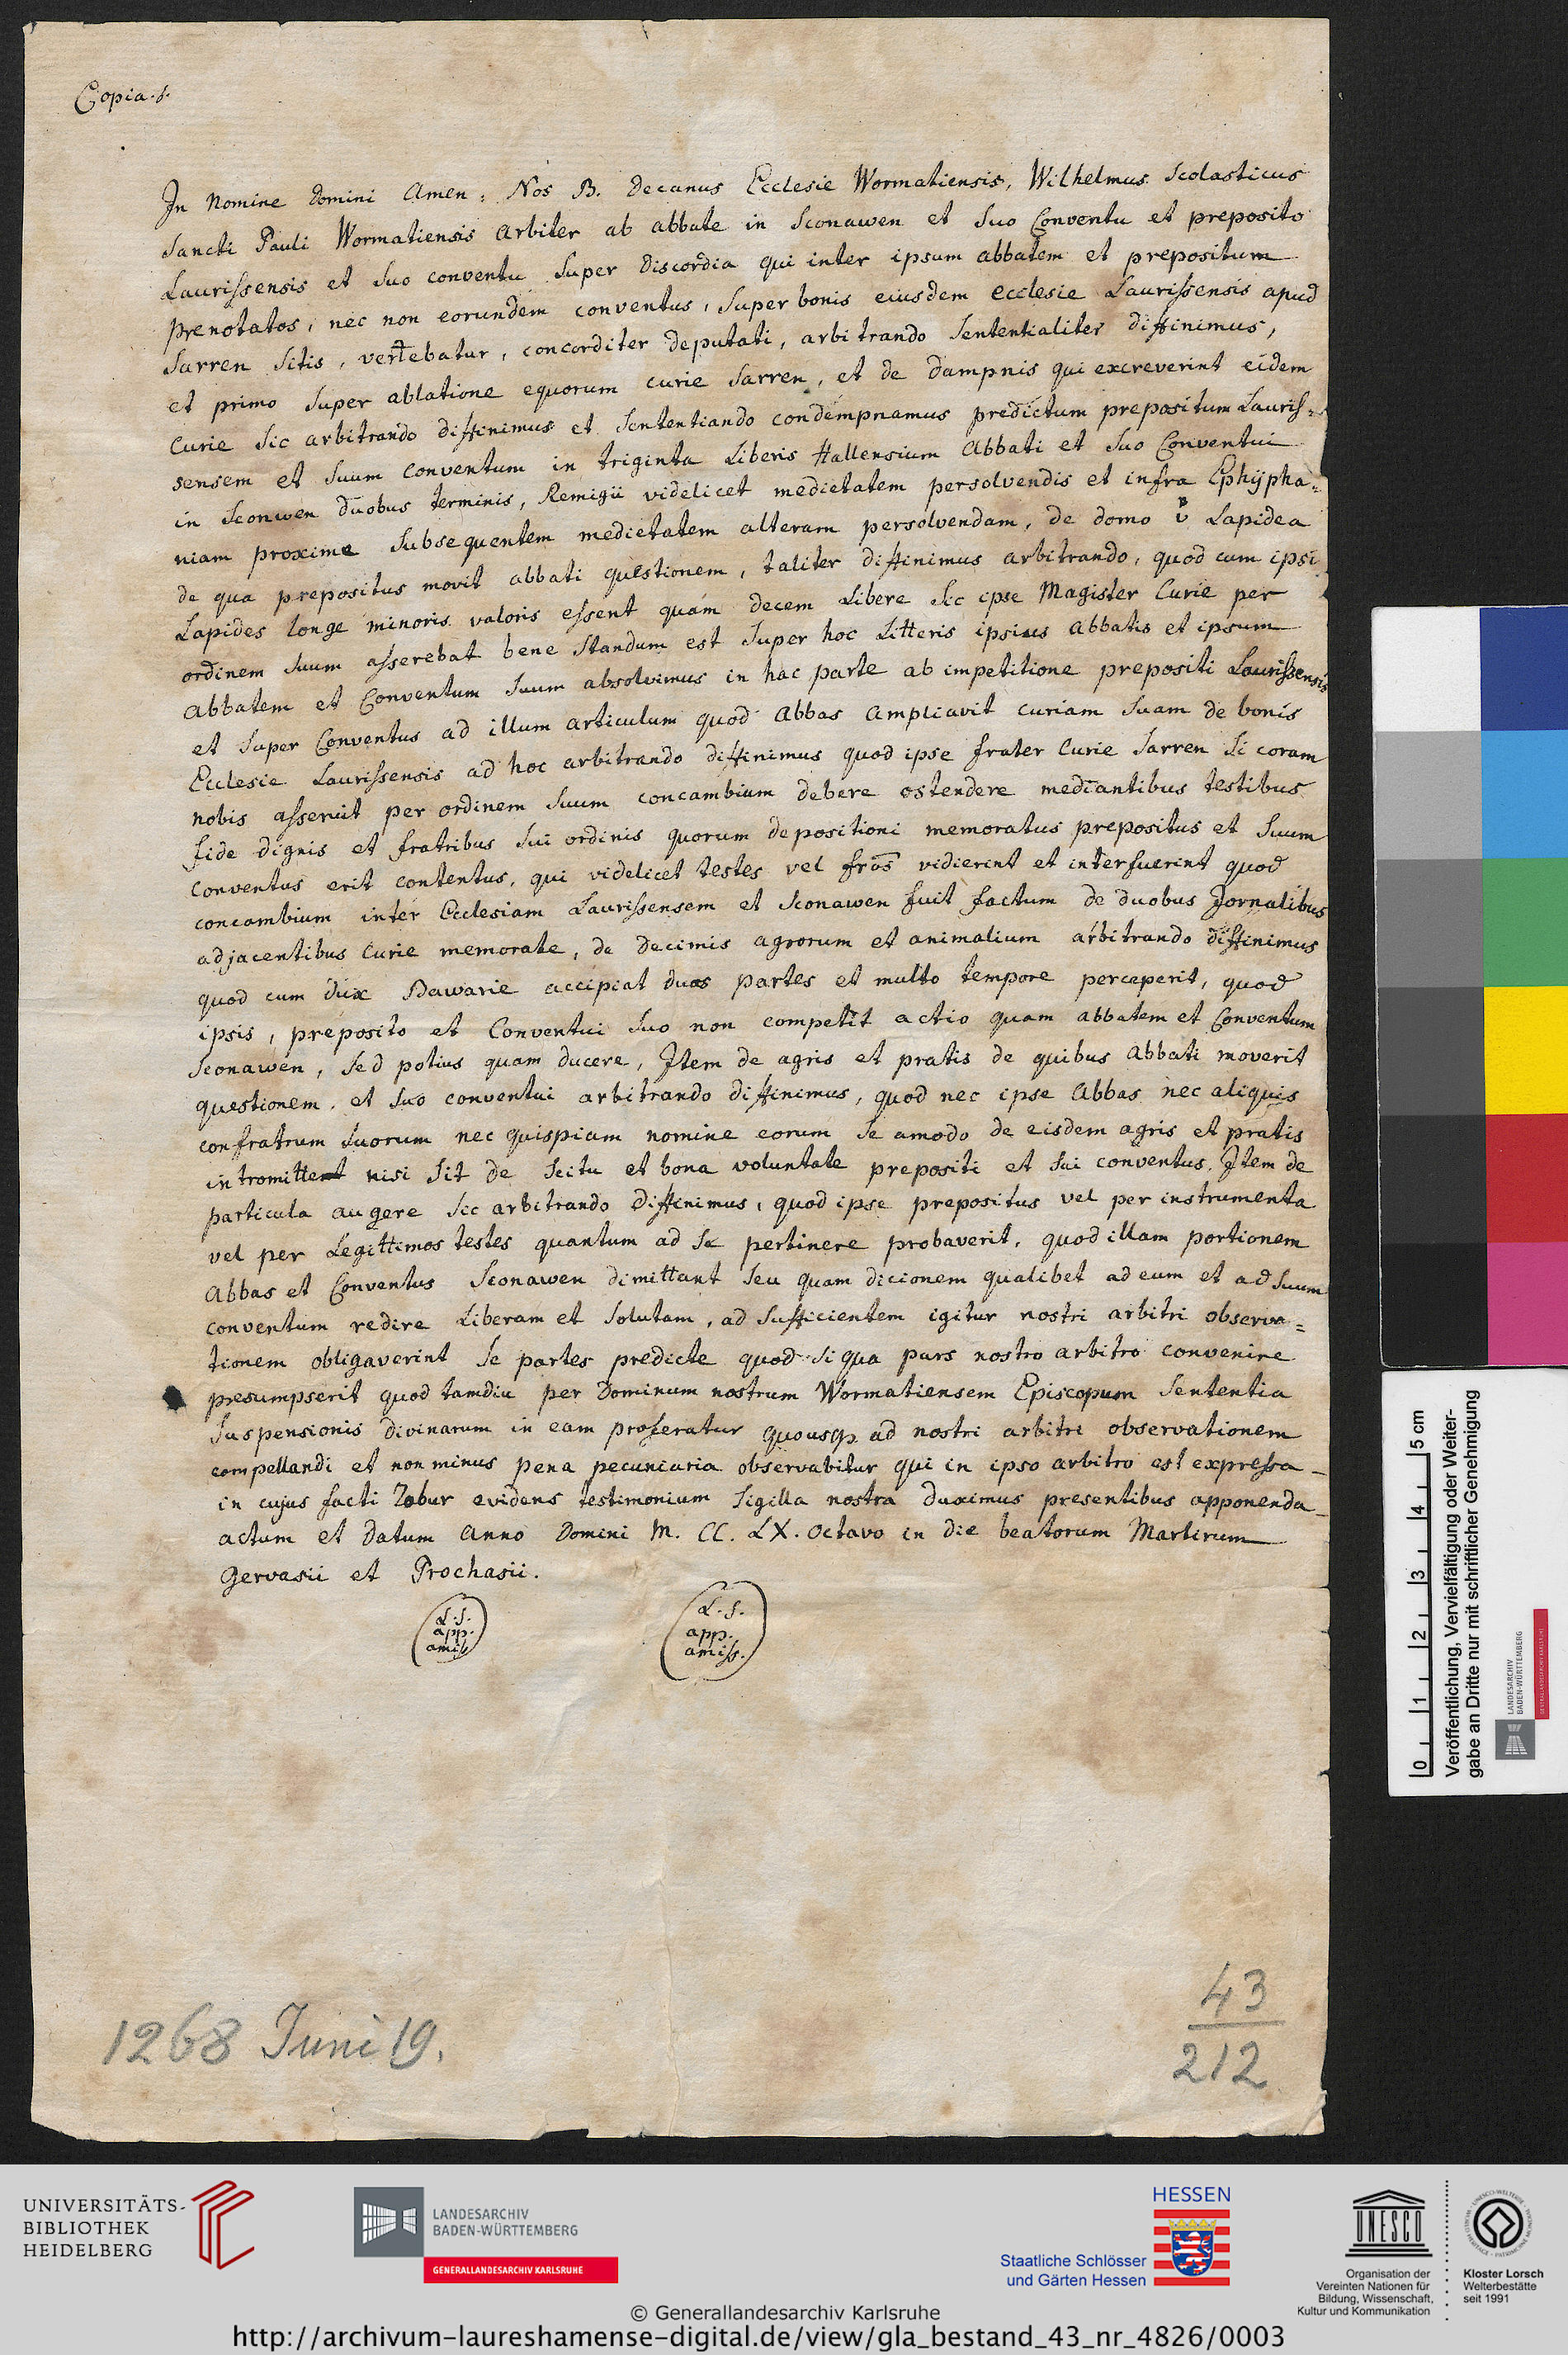 Copia.
In Nomine Domini Amen. Nos B. Decanus Ecclesie Wormatiensis, Wilhelmus Scolasticus
Sancti Pauli Wormatiensis arbiter ab abbate in Sconawen et suo Conventu et preposito
Laurissensis et suo conventu super discordia qui inter ipsum abbatem et prepositum
prenotatos, nec non eorundem conventus, super bonis eiusdem ecclesie Laurissensis apud
Sarren sitis, vertebatur, concorditer deputati, arbitrando sententialiter diffinimus,
et primo super ablatione equorum curie Sarren, et de dampnis qui excreverint eidem
Curie sic arbitrando diffinimus et sententiando condempnamus predictum prepositum Lauris=
sensem et suum conventum in triginta Liberis Hallensium Abbati et suo Conventui
in Sconwen duobus terminis, Remigii videlicet medietatem persolvendis et infra Ephÿpha=
niam proxime subsequentem medietatem alteram persolvendam, de domo Lapidea
de qua prepositus movit abbati questionem, taliter diffinimus arbitrando, quod cum ipsi
Lapides longe minoris valoris essent quám decem Libere sic ipse Magister Curie per
ordinem suum asserebat bene standum est super hoc Litteris ipsius Abbatis et ipsum
abbatem et Conventum suum absolvimus in hac parte ab impetitione prepositi Laurissensis
et super Conventus ad illum articulum quod Abbas ampliavit curiam suam de bonis
Ecclesie Laurissensis ad hoc arbitrando diffinimus quod ipse frater Curie Sarren si coram
nobis asseruit per ordinem suum concambium debere ostendere mediantibus testibus
fide dignis et fratribus sui ordinis quorum depositioni memoratus prepositus et suum
conventus erit contentus, qui videlicet testes vel frōs vidierint et interfuerint quod
concambium inter Ecclesiam Laurissensem et Sconawen fuit factum de duobus Jornalibus
adjacentibus Curie memorate, de decimis agrorum et animalium arbitrando diffinimus
quod cum dux Bawarie accipiat duas partes et multo tempore perceperit, quod
ipsis, preposito et Conventui suo non competit actio quam abbatem et Conventum
Sconawen, sed potius quam ducere, Item de agris et pratis de quibus Abbati moverit
questionem, et suo conventui arbitrando diffinimus, quod nec ipse Abbas nec aliquis
confratrum suorum nec quispiam nomine eorum se amodo de eisdem agris et pratis
intromittent nisi sit de scitu et bona voluntate prepositi et sui conventus. Item de
particula augere sic arbitrando diffinimus, quod ipse prepositus vel per instrumenta
vel per Legittimos testes quantum ad se pertinere probaverit, quod illam portionem
Abbas et Conventus Sconawen dimittant seu quam dicionem qualibet ad eum et ad suum
conventum redire Liberam et solutam, ad sufficientem igitur nostri arbitri observa=
tionem obligaverint se partes predicte quod si qua pars nostro arbitro convenire
presumpserit quod tamdiu per Dominum nostrum Wormatiensem Episcopum sententia
suspensionis divinarum in eam proferatur quousqs ad nostri arbitri observationem
compellandi et non minus pena pecuniaria observabitur qui in ipso arbitro est expressa
in cujus facti robur evidens testimonium sigilla nostra duximus presentibus apponenda
actum et datum anno Domini M. CC. LX. octavo in die beatorum Martirum
Gervasii et Prochasii.
L. S.
app.
amiss.
L. S.
app.
amiss.
1268 Juni 19.
43
212
0 1 2 3 4 5 cm
Veröffentlichung, Vervielfältigung oder Weiter-
gabe an Dritte nur mit schriftlicher Genehmigung
LANDESARCHIV
BADEN-WÜRTTEMBERG
GENERALLANDESARCHIV KARLSRUHE
UNIVERSITÄTS-
BIBLIOTHEK
HEIDELBERG
LANDESARCHIV
BADEN-WÜRTTEMBERG
GENERALLANDESARCHIV KARLSRUHE
HESSEN
Staatliche Schlösser
und Gärten Hessen
UNESCO
Organisation der
Vereinten Nationen für
Bildung, Wissenschaft,
Kultur und Kommunikation
Kloster Lorsch
Welterbestätte
seit 1991
© Generallandesarchiv Karlsruhe
http://archivum-laureshamense-digital.de/view/gla_bestand_43_nr_4826/0003